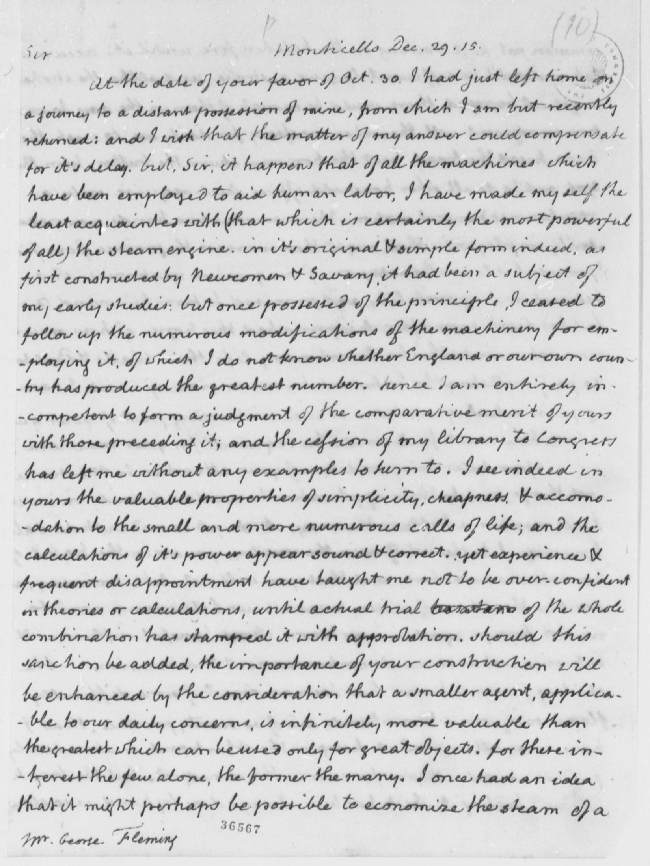 (10)
Sir Monticello Dec. 29. 15.
At the date of your favor of Oct. 30. I had just left home on
a journey to a distant possession of mine, from which I am but recently
returned: and I wish that the matter of my answer could compensate
for it's delay. but, Sir, it happens that of all the machines which
have been employed to aid human labor, I have made myself the
least acquainted with (that which is certainly the most powerful
of all) the steam engine. in it's original & simple form indeed, as
first constructed by Newcomen & Savary, it had been a subject of
my early studies: but once possessed of the principle, I ceased to
follow up the numerous modifications of the machinery for em-
-ploying it, of which I do not know whether England or our own coun-
try has produced the greatest number. hence I am entirely in-
-competent to form a judgment of the comparative merit of yours
with those preceding it; and the cession of my library to Congress
has left me without any examples to turn to. I see indeed in
yours the valuable properties of simplicity, cheapness, & accomo-
-dation to the small and more numerous calls of life; and the
calculations of it's power appear sound & correct. yet experience &
frequent disappointment have taught me not to be over-confident
in theories or calculations, until actual trial of the whole
combination has stamped it with approbation. should this
sanction be added, the importance of your construction will
be enhanced by the consideration that a smaller agent, applica-
-ble to our daily concerns, is infinitely more valuable than
the greatest which can be used only for great objects. for these in-
-terest the few alone, the former the many. I once had an idea
that it might perhaps be possible to economize the steam of a
Mr. George Fleming
36567